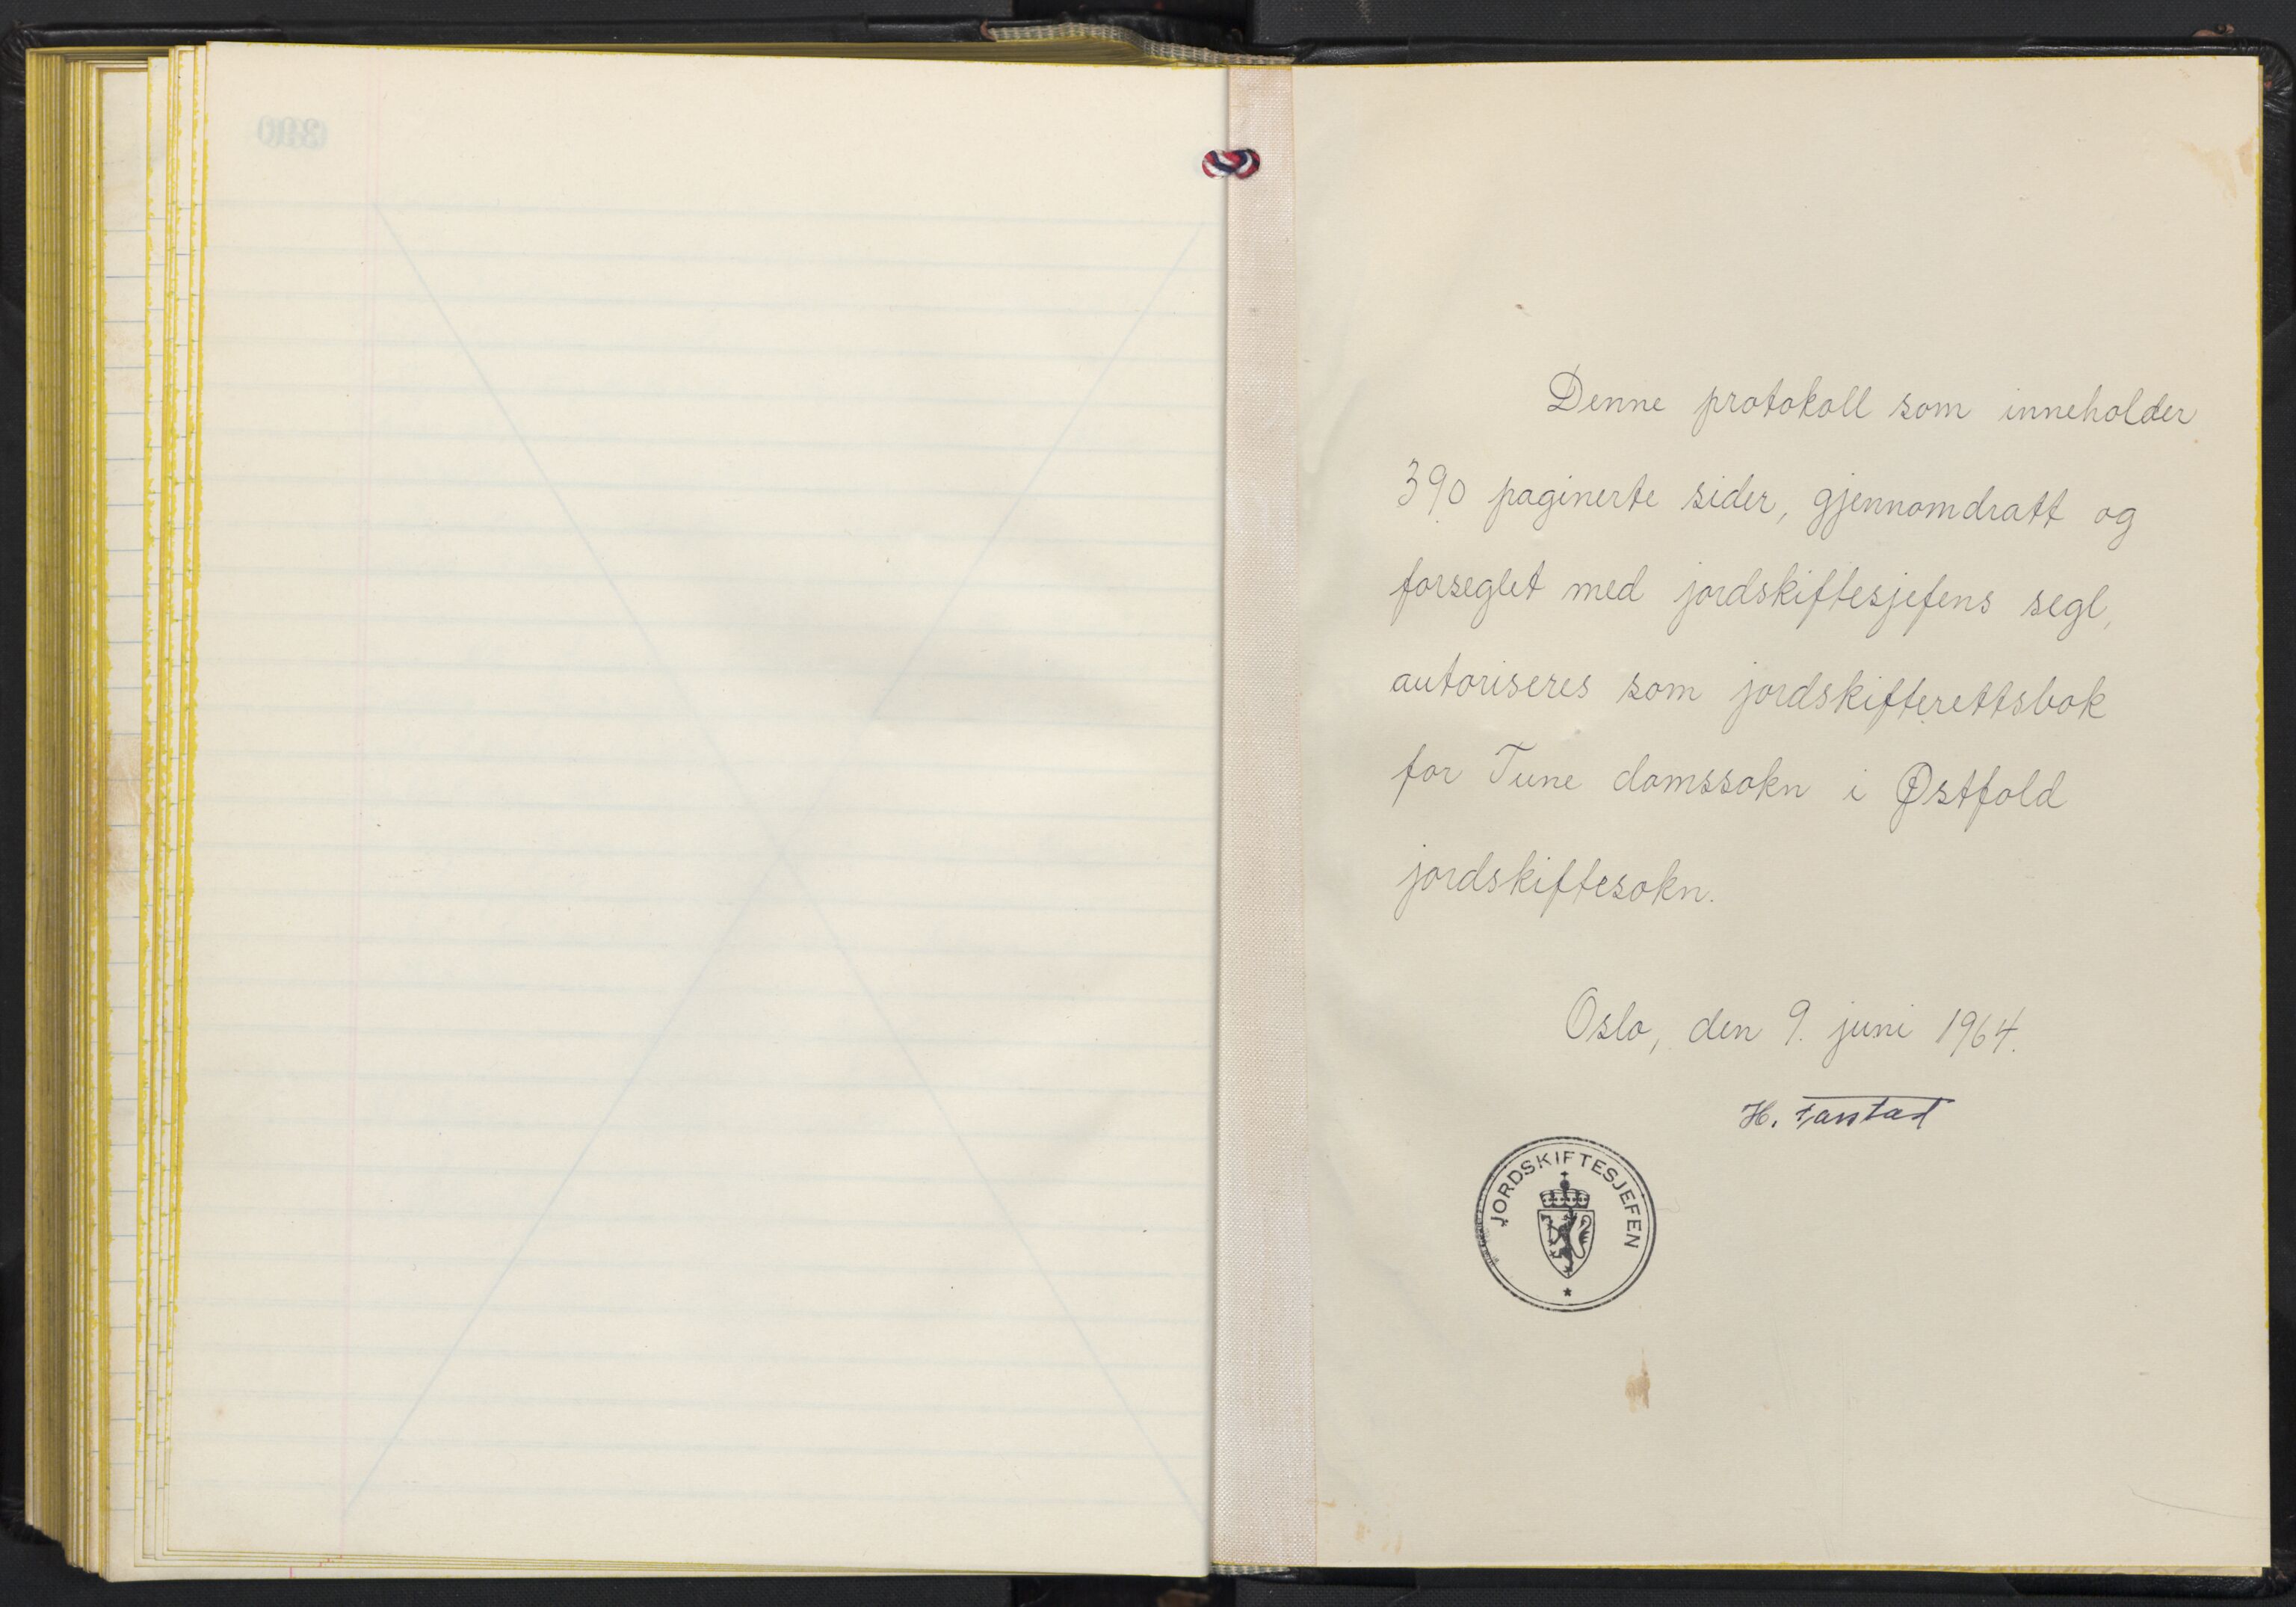 390
Denne protokoll som inneholder
390 paginerte sider, gjennomdratt og
forseglet med jordskiftesjefens segl,
autoriseres som jordskifterettsbok
for Tune domssokn i Østfold
jordskiftesokn.
Oslo, den 9. juni 1964.
H.
JORDSKIFTESJEFEN